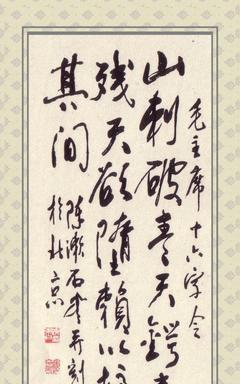 毛主席十六字令
山刺破青天锷未
残天欲堕赖以拄
其间
陈漱石书并刻
於北京